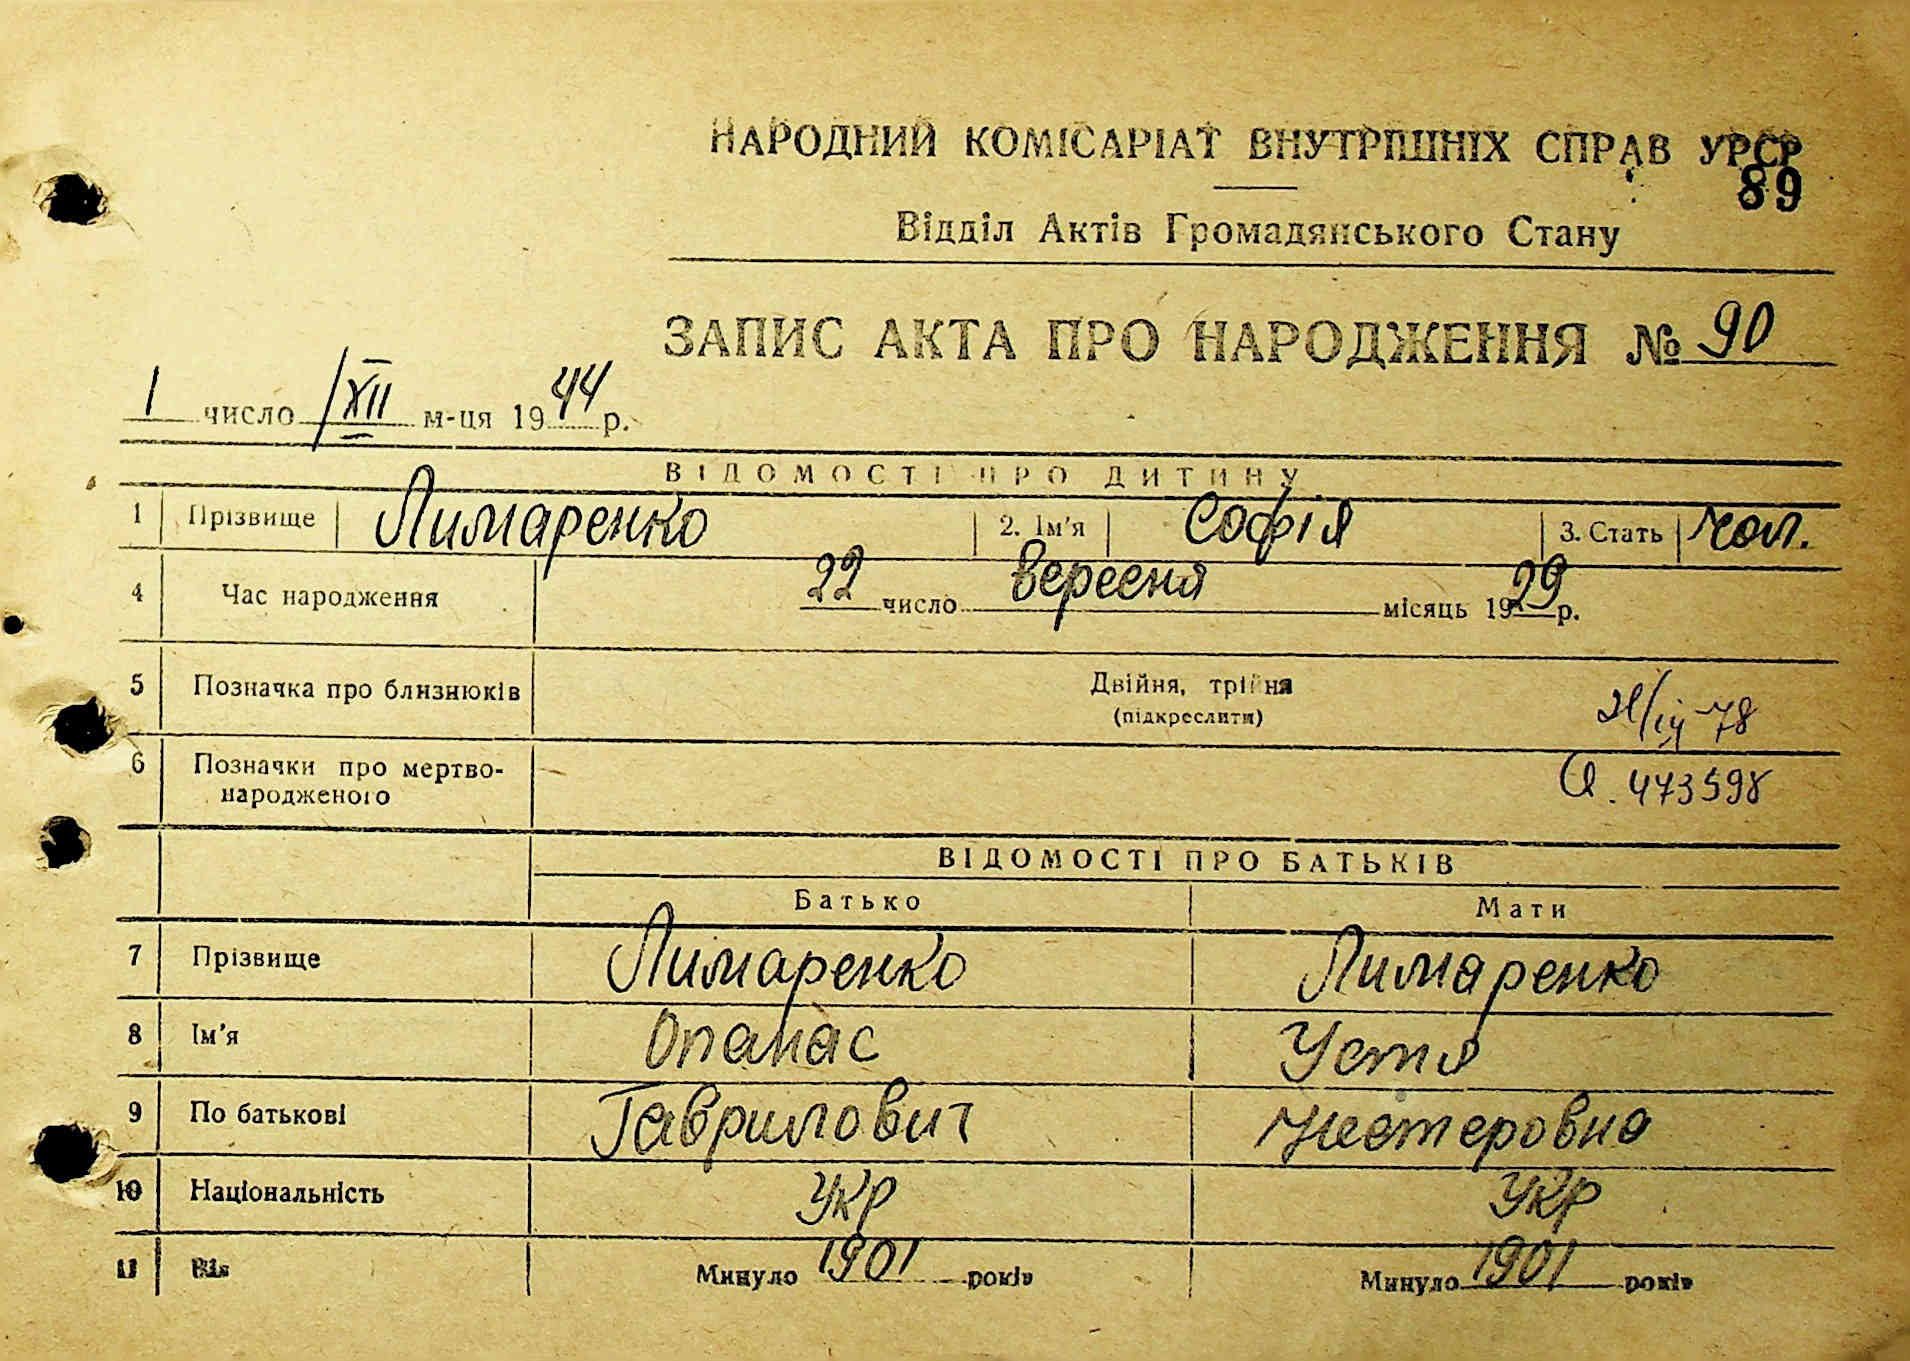 НАРОДНИЙ КОМІСАРІАТ ВНУТРІШНІХ СПРАВ УРСР
89
Відділ Актів Громадянського Стану
ЗАПИС АКТА ПРО НАРОДЖЕННЯ № 90
1 число /XII м-ця 1944 р.
ВІДОМОСТІ ПРО ДИТИНУ
1 Прізвище Лимаренко 2. Ім'я Софія 3. Стать чол.
4 Час народження 22 число вересня місяць 1929 р.
5 Позначка про близнюків Двійня, трійня
(підкреслити)
78
6 Позначки про мертво-
народженого
473598
ВІДОМОСТІ ПРО БАТЬКІВ
Батько Мати
7 Прізвище Лимаренко Лимаренко
8 Ім'я Опанас Устя
9 По батькові Гаврилович Нестеровна
10 Національність Укр Укр
11 Вік Минуло 1901 років Минуло 1901 років